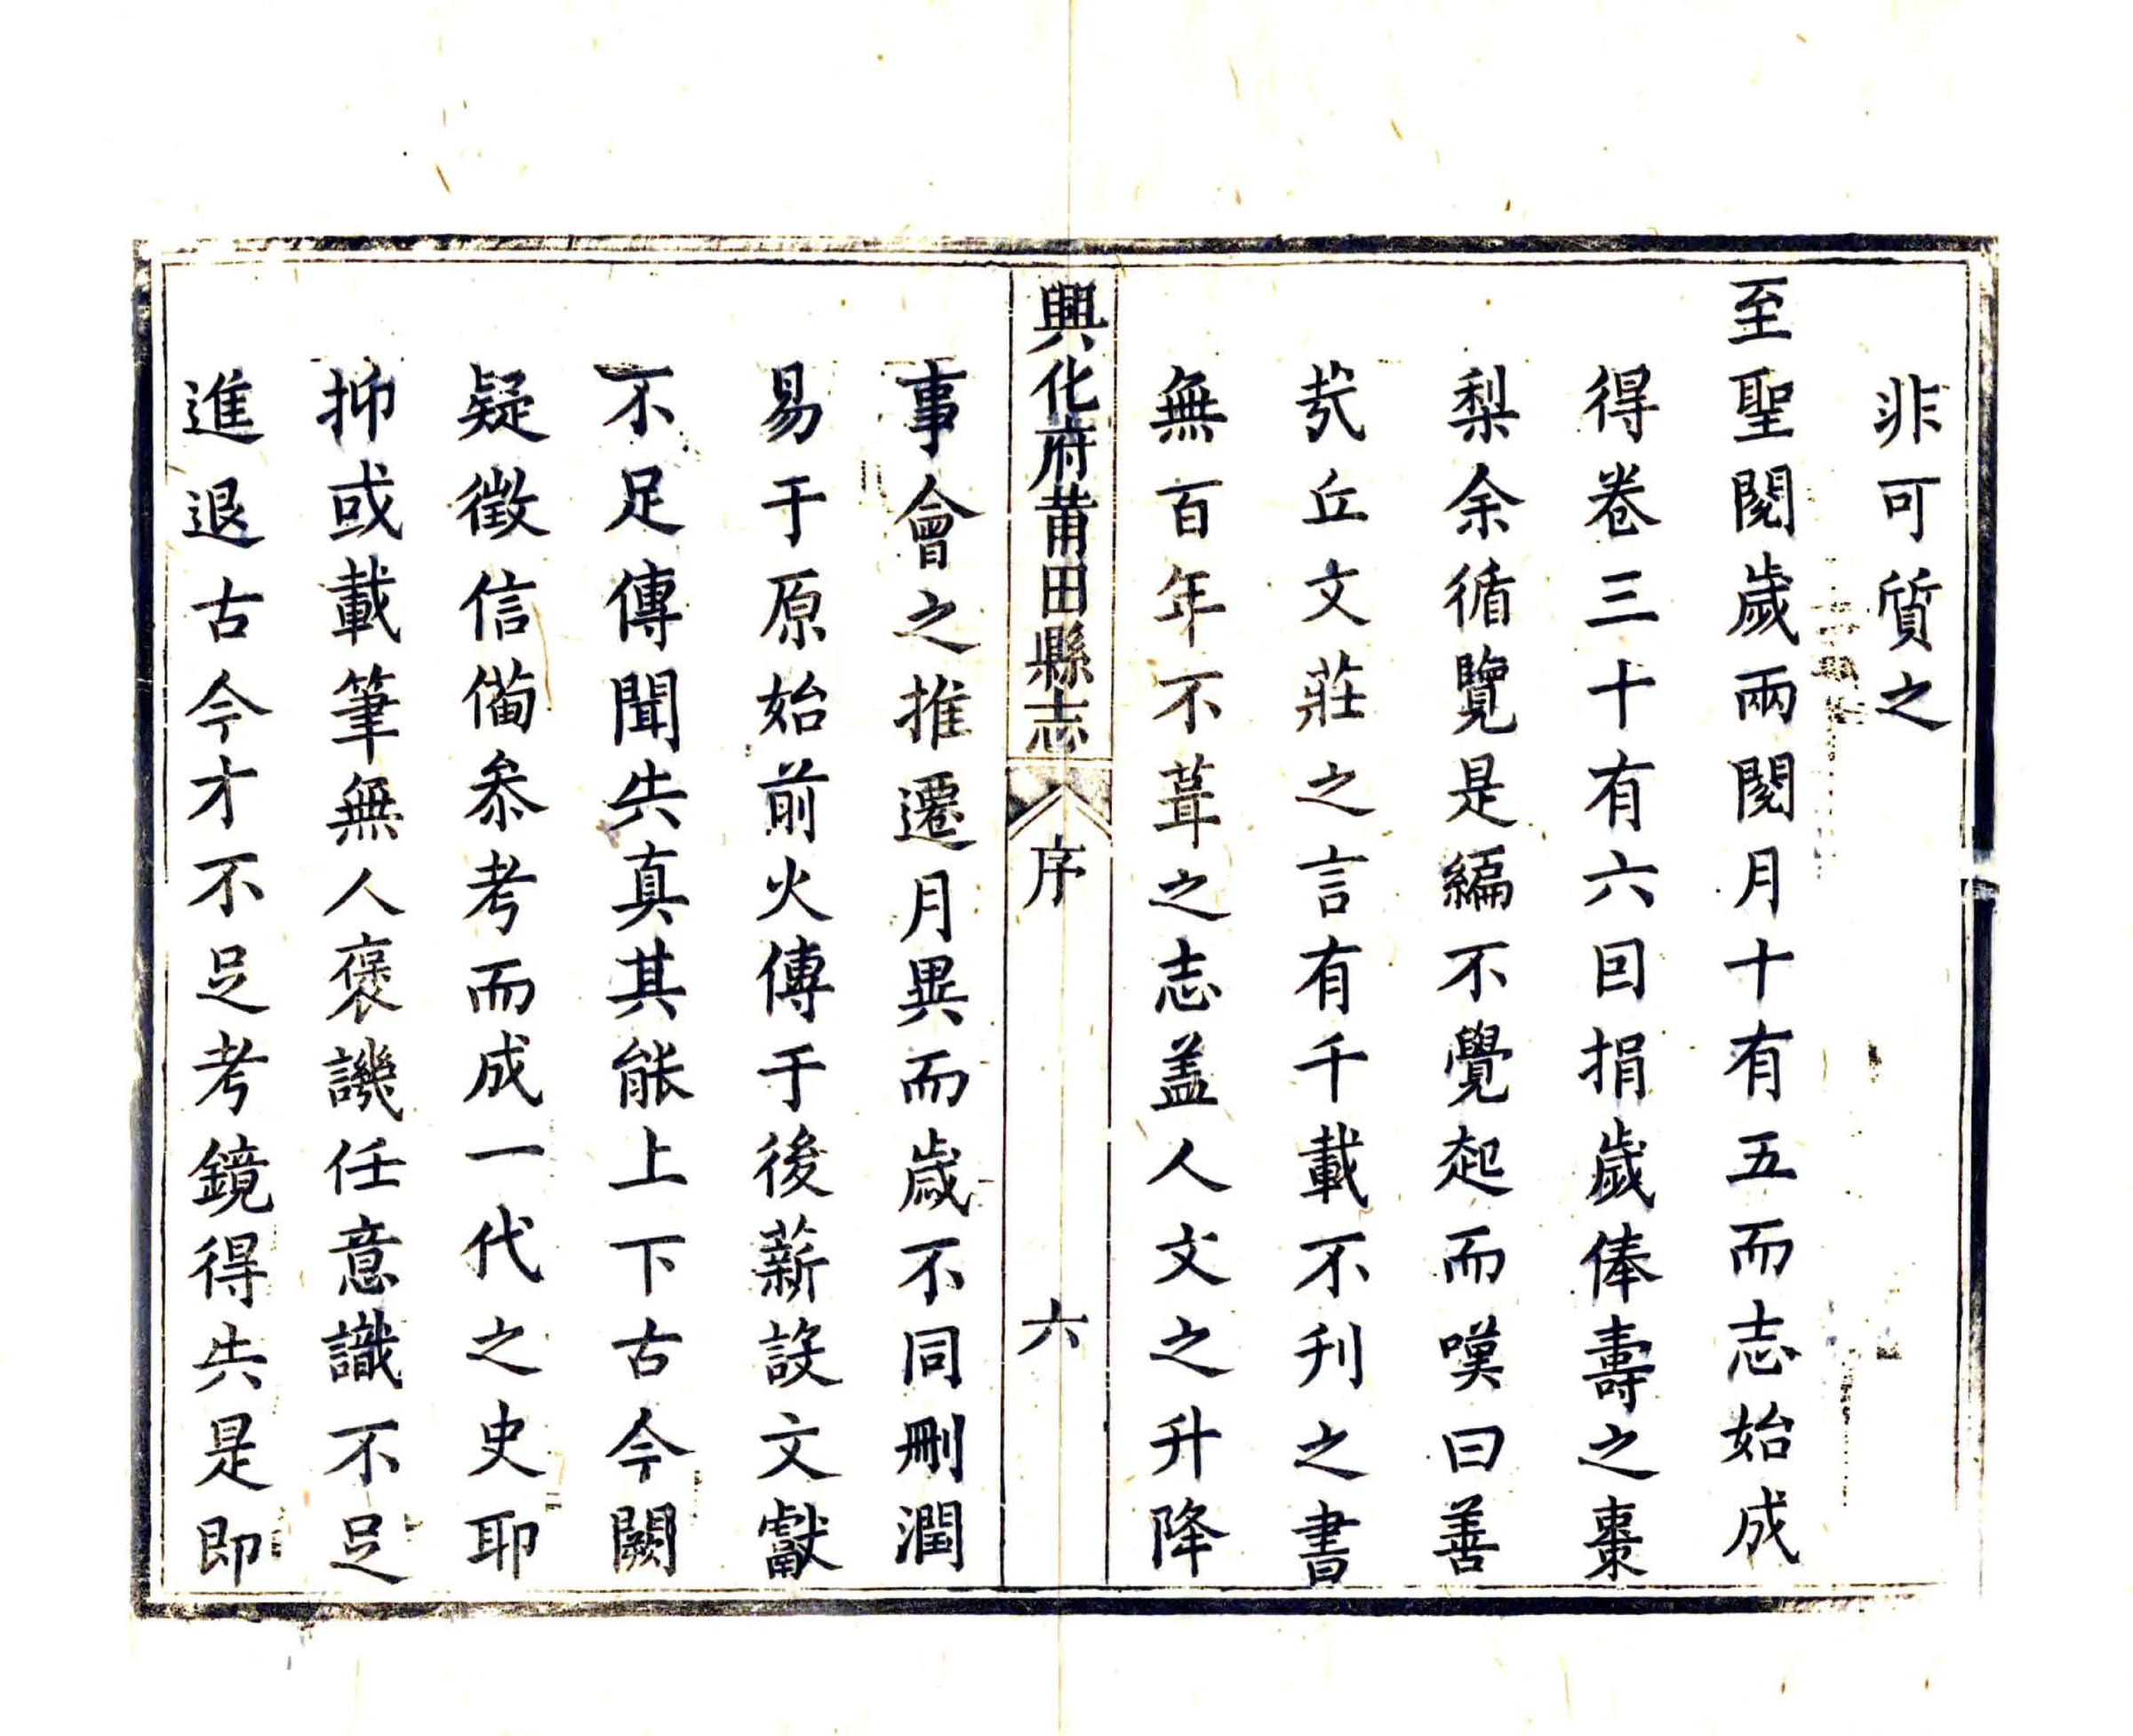 非可質之
至聖閱歲兩閱月十有五而志始成
得卷三十有六囙捐歲俸壽之棗
梨余循覽是編不覺起而嘆曰善
㢤丘文莊之言有千載不刋之書
無百年不葺之志盖人文之升降
興化府莆田縣志 序 六
事會之推遷月異而歲不同刪潤
易于原始前火傳于後薪設文獻
不足傳聞失真其能上下古今闕
疑徵信俻叅考而成一代之史耶
抑或載筆無人褒譏任意識不足
進退古今才不足考鏡得失是即